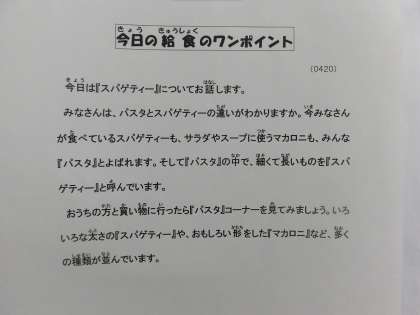 今日の給食のワンポイント
(0420)
今日は『スパゲティー』についてお話します。
みなさんは、パスタとスパゲティーの違いがわかりますか。今みなさん
が食べているスパゲティーも、サラダやスープに使うマカロニも、みんな
『パスタ』とよばれます。そして『パスタ』の中で、細くて長いものを『スパ
ゲティー』と呼んでいます。
おうちの方と買い物に行ったら『パスタ』コーナーを見てみましょう。いろ
いろな太さの『スパゲティー』や、おもしろい形をした『マカロニ』など、多く
の種類が並んでいます。